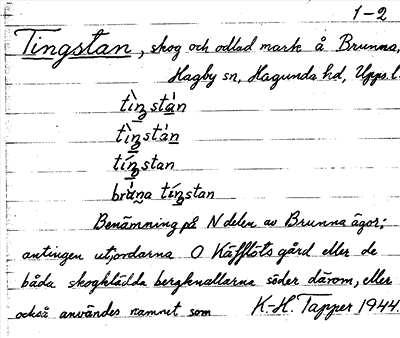 1-2
Tingstan, skog och odlad mark å Brunna,
Hagby sn, Hagunda hd, Upps. l.
tìŋstán
tìŋstán
tíŋstan
brúna tíŋstan
Benämning på N delen av Brunna ägor;
antingen utjordarna O Käfflöts gård eller de
båda skogklädda bergknallarna söder därom, eller
också användes namnet som K-H. Tapper 1944.